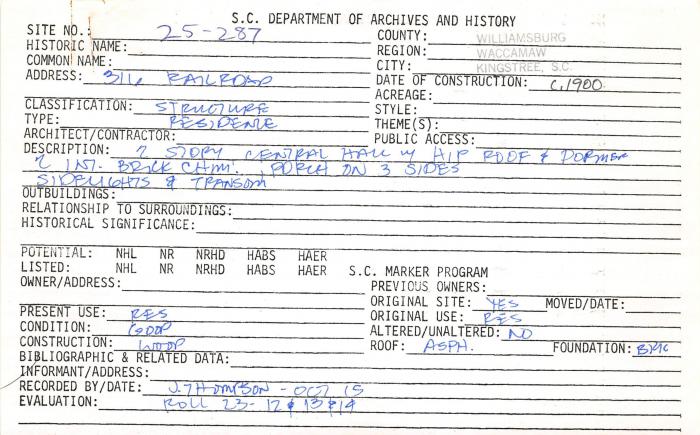 S.C. DEPARTMENT OF ARCHIVES AND HISTORY
SITE NO.: 25-287 COUNTY: WILLIAMSBURG
HISTORIC NAME: REGION: WACCAMAW
COMMON NAME: CITY: KINGSTREE, S.C.
ADDRESS: 316 RAILROAD DATE OF CONSTRUCTION: C.1900
ACREAGE:
CLASSIFICATION: STRUCTURE STYLE:
TYPE: RESIDENCE THEME(S):
ARCHITECT/CONTRACTOR: PUBLIC ACCESS:
DESCRIPTION: 2 STORY CENTRAL HALL W/ HIP ROOF & DORMER
2 INT. BRICK CHIM. PORCH ON 3 SIDES
SIDELIGHTS & TRANSOM
OUTBUILDINGS:
RELATIONSHIP TO SURROUNDINGS:
HISTORICAL SIGNIFICANCE:
POTENTIAL: NHL NR NRHD HABS HAER
LISTED: NHL NR NRHD HABS HAER S.C. MARKER PROGRAM
OWNER/ADDRESS: PREVIOUS OWNERS:
ORIGINAL SITE: YES MOVED/DATE:
PRESENT USE: RES ORIGINAL USE: RES
CONDITION: GOOD ALTERED/UNALTERED: NO
CONSTRUCTION: WOOD ROOF: ASPH. FOUNDATION: BRK
BIBLIOGRAPHIC & RELATED DATA:
INFORMANT/ADDRESS:
RECORDED BY/DATE: J. THOMPSON - OCT 15
EVALUATION: ROLL 23- 12 & 13 & 14